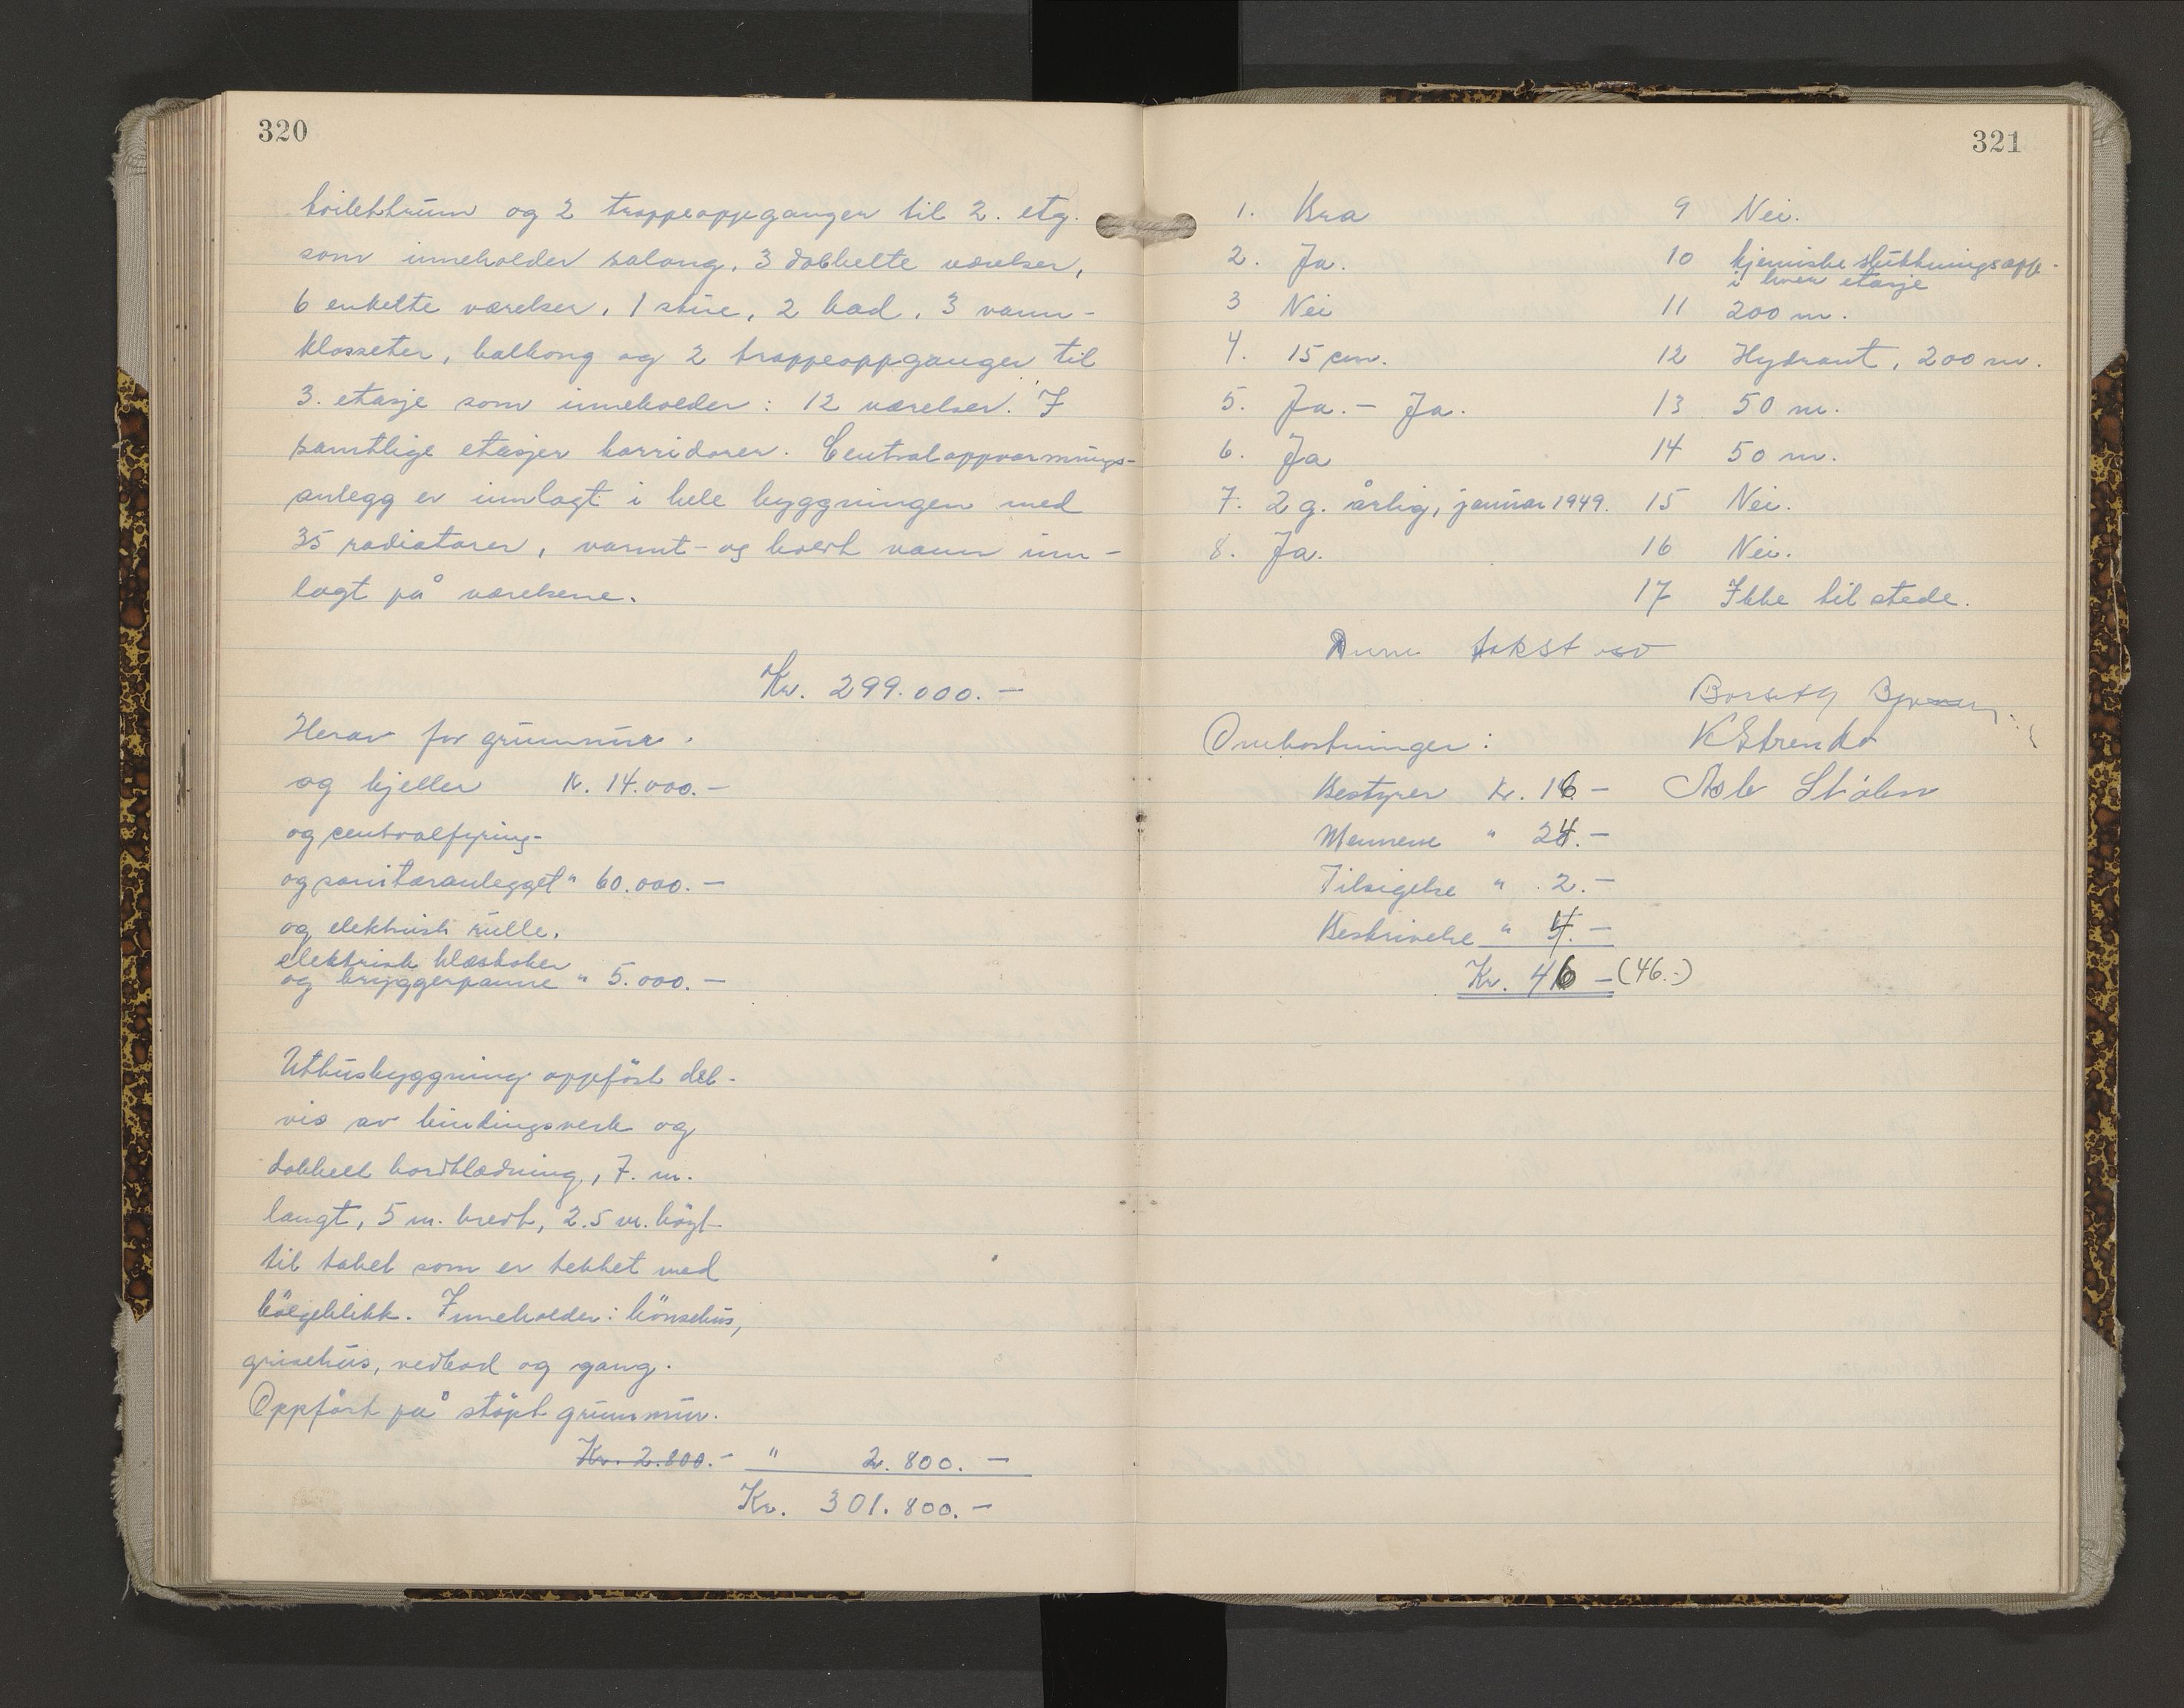 320
toilettrum og 2 trappeoppganger til 2. etg.
som inneholder salong, 3 dobbelte værelser,
6 enkelte værelser, 1 stue, 2 bad, 3 vann-
klosseter, balkong og 2 trappeoppganger til
3. etasje som inneholder: 12 værelser. I
samtlige etasjer korridorer. Centraloppvarmings-
anlegg er innlagt i hele byggningen med
35 radiatorer, varmt- og koldt vann inn-
lagt på værelsene.
Kr. 299.000.-
Herav for grunnmur
og kjeller Kr. 14.000.-
og centralfyring-
og sanitæranlegget " 60.000.-
og elektrisk rulle,
elektrisk klæskoker
og bryggerpanne " 5.000.-
Uthusbyggning oppfört del-
vis av bindingsverk og
dobbelt bordklædning, 7. m.
langt, 5 m. bredt, 2.5 m. högt
til taket som er tekket med
bölgeblikk. Inneholder: hönsehus,
grisehus, vedbod og gang.
Oppfört på stöpt grunnmur.
Kr. 2.800.- " 2.800.-
Kr. 301.800.-
321
1. Bra
2. Ja.
3 Nei
4. 15 cm.
5. Ja. - Ja.
6. Ja
7. 2 g. årlig, januar 1949.
8. Ja.
9 Nei.
10 kjemiske slukkningsapp.
i hver etasje
11 200 m.
12 Hydrant, 200 m.
13 50 m.
14 50 m.
15 Nei.
16 Nei.
17 Ikke til stede.
takst
Omkostninger:
Bestyrer Kr. 16 -
Mennene " 24.-
Tilsigelse " 2.-
Beskrivelse " 4.-
Kr. 46 - (46.-)